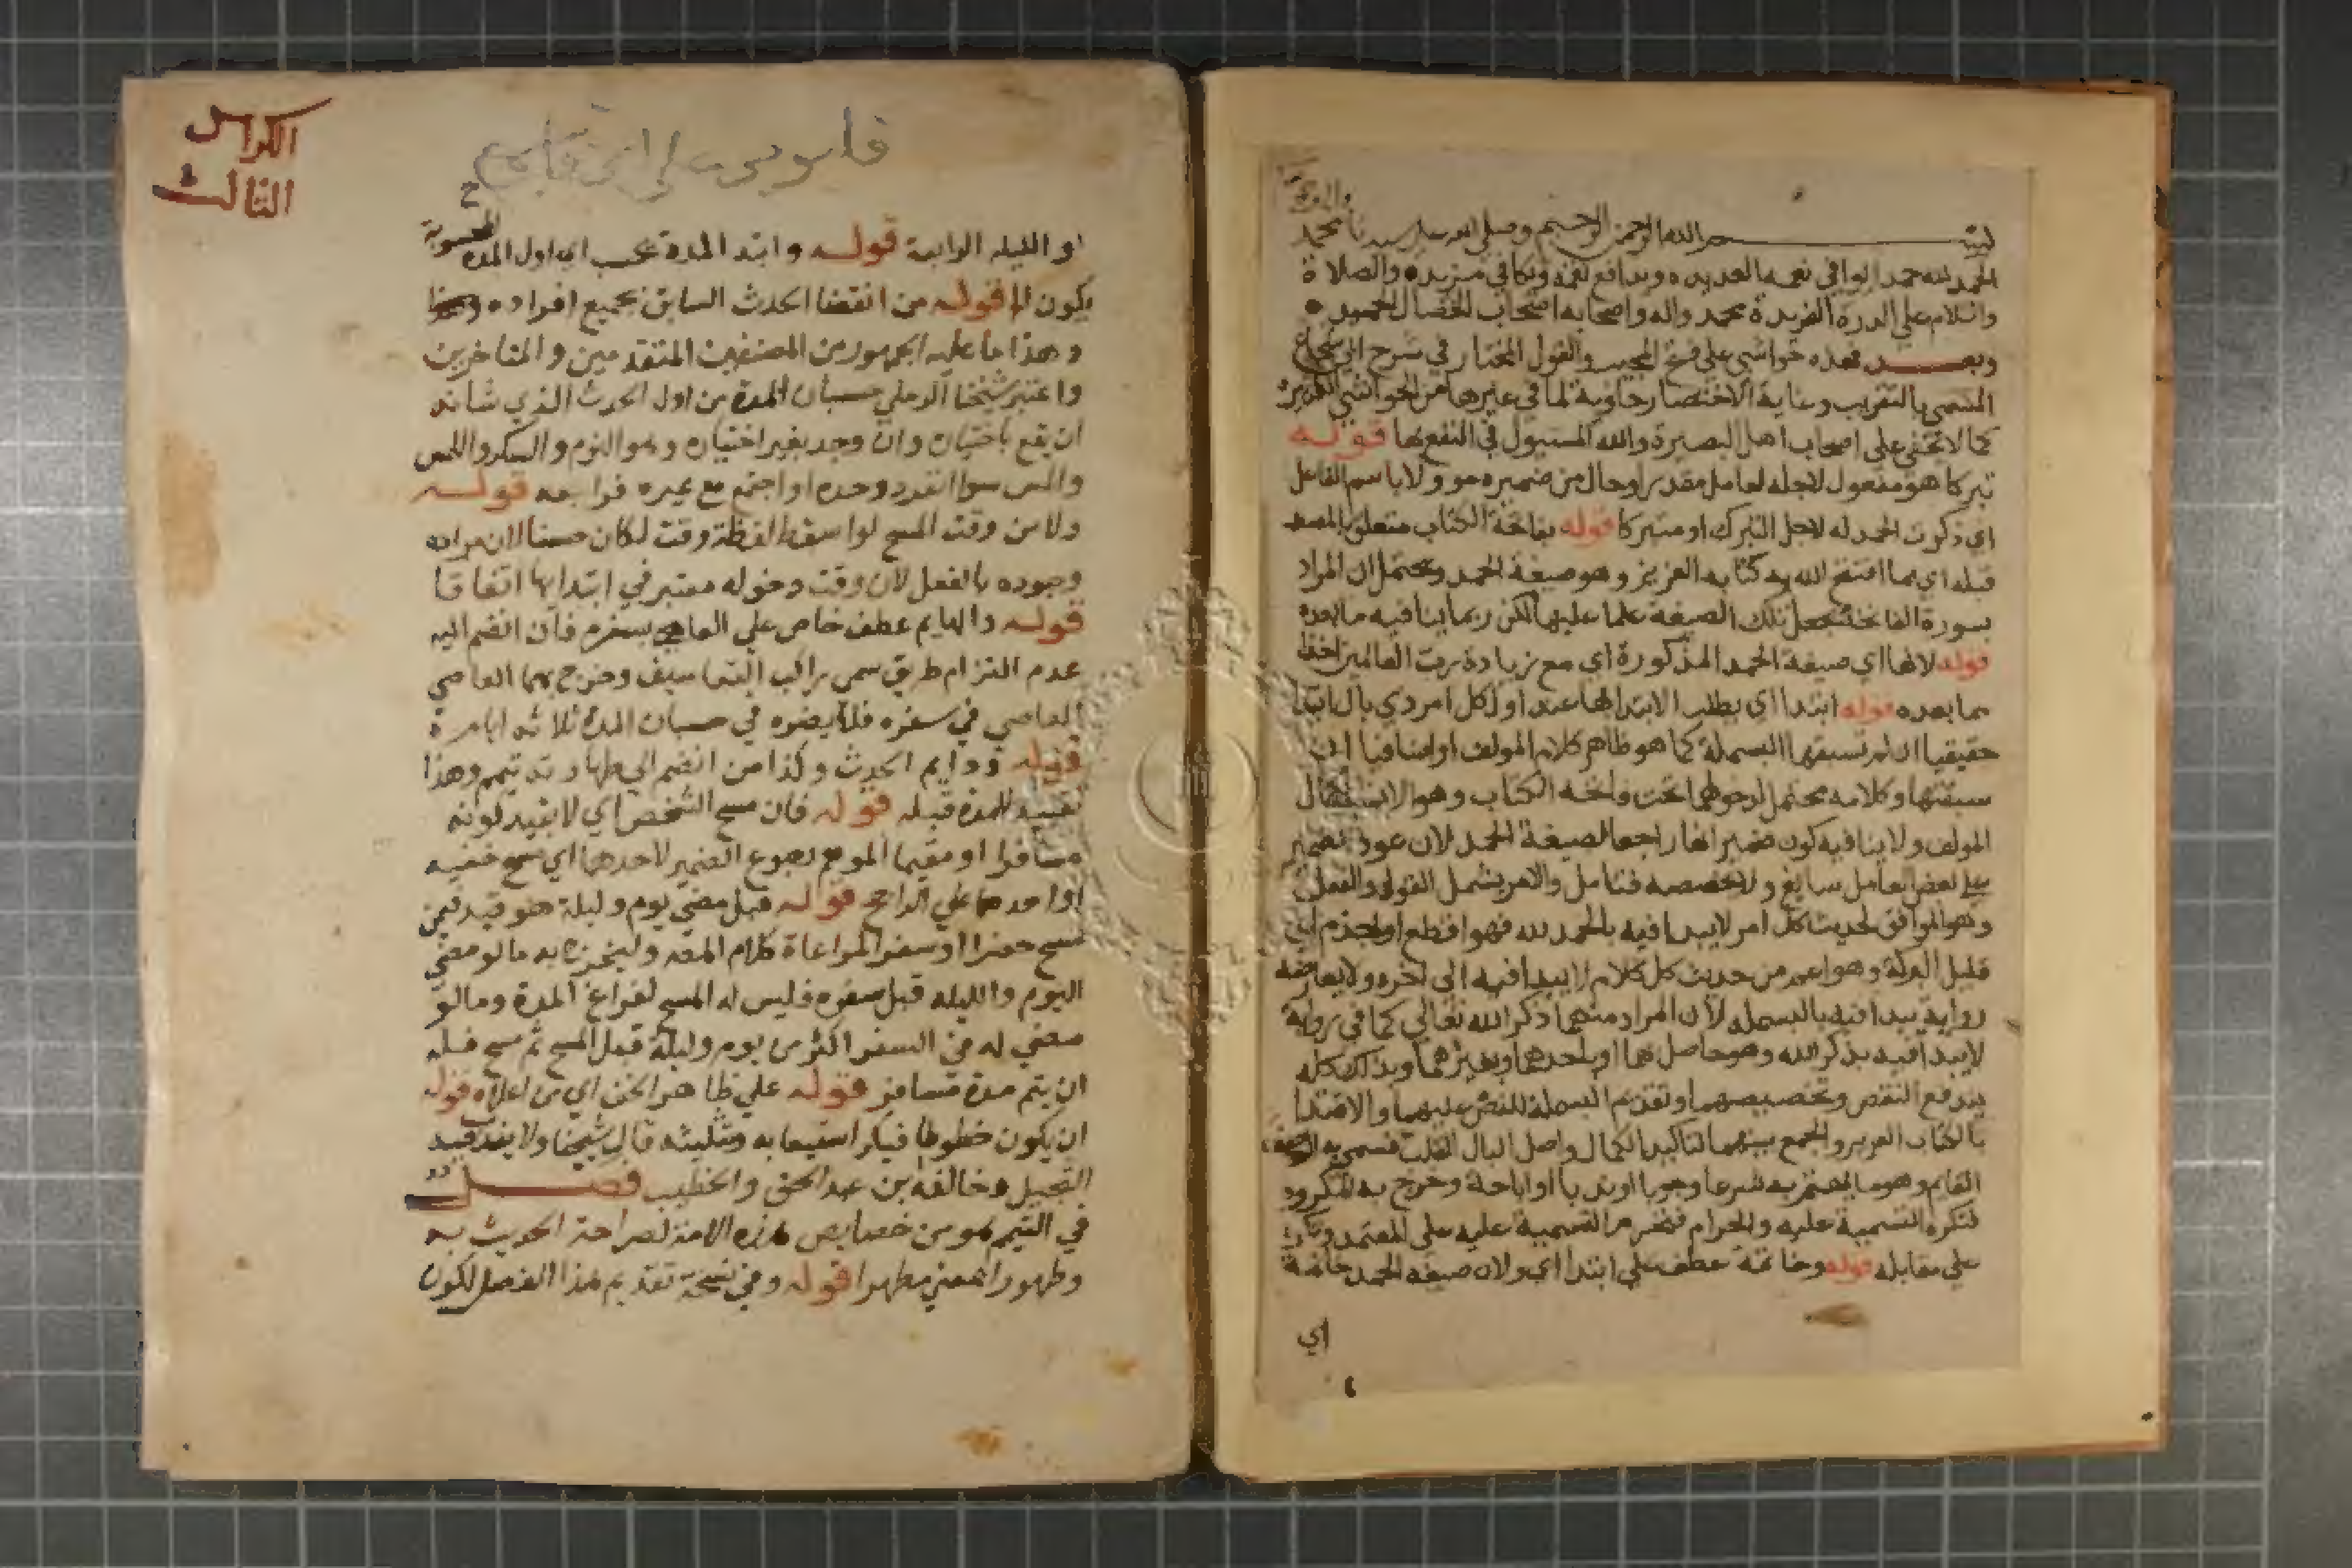 بسم الله الرحمن الرحيم وصلى الله على سيدنا محمد
الحمد لله حمدا يوافي نعمه العديده ويدافع نقمه ويكافي مزيده والصلاة
والسلام على الدرة الفريدة محمد واله واصحابه اصحاب الخصال الحميده
وبعد فهذه حواشي على فتح المجيب والقول المختار في شرح ابي شجاع
المسمى بالتقريب وغاية الاختصار حاوية لما في غيرها من الحواشي
كما لا تخفى على اصحاب اهل البصيرة والله المسيول في النفع بها قوله
تبركا هو مفعول لاجله لعامل مقدر او حال من ضميره مو ولا باسم الفاعل
اي ذكرت الحمد له لاجل التبرك او متبركا قوله بفاتحة الكتاب متعلق
قبله اي بما افتتح الله به كتابه العزيز وهو صيغة الحمد ويحتمل ان المراد
بسورة الفاتحة بجعل تلك الصيغة علما عليها لكن ربما ينافيه ما بعده
قوله لانها اي صيغة الحمد المذكورة اي مع زيادة رب العالمين اخذا
مما بعده قوله ابتدا اي يطلب الابتدا بها عند اول كل امر ذي بال ابتدا
حقيقيا ان لم تسبقها البسملة كما هو ظاهر كلام المولف او اضافيا ان
سبقتها وكلامه محتمل
المولف ولا ينافيه كون ضمير انها راجعا لصيغة الحمد لان عود الضمير
على بعض العام سايغ ولا يخصصه فتامل والامر يشمل القول والفعل
وهو الموافق لحديث كل امر لا يبدا فيه بالحمد لله فهو اقطع او اجذم اي
قليل البركة وهو اعم من حديث كل كلام لا يبدا فيه الى اخره ولا يعارضه
رواية يبدا فيه بالبسملة لان المراد منهما ذكر الله تعالى كما في رواية
لا يبدا فيه بذكر الله وهو حاصل بهما او باحدهما وبغيرهما وبذلك كله
يندفع النقض وتخصيصهما وتقديم البسملة للنص عليهما والاقتدا
بالكتاب العزيز والجمع بينهما لتاكيد الكمال واصل البال القلب فسمي به
القايم وهو ما يهتم به شرعا وجوبا او ندبا او اباحة وخرج به المكروه
فتكره التسمية عليه والحرام فتحرم التسمية عليه على المعتمد
على مقابله قوله وخاتمة عطف على ابتدا اي ولان صيغة الحمد خاتمة
اي
الكراس
الثالث
قليوبي على ابن قاسم
او الليله الرابعة قوله وابتدا المدة تحسب اي اول المدة المحسوبة
يكون الا قوله من انقضا الحدث السابق بجميع افراده
وهذا ما عليه الجمهور من المصنفين المتقدمين والمتاخرين
واعتبر شيخنا الرملي حسبان المدة من اول الحدث الذي شانه
ان يقع باختياره وان وجد بغير اختياره وهو النوم والسكر واللمس
والمس سوا انفرد وحده او اجتمع مع غيره فراجعه قوله
ولا من وقت المسح لو اسقط لفظة وقت لكان حسنا اذ مراده
وجوده بالفعل لان وقت دخوله معتبر في ابتدايها اتفاقا
قوله والهايم عطف خاص على العاصي بسفره فان انضم اليه
عدم التزام طريق سمي راكب التعاسيف وخرج بهما العاصي
العاصي في سفره فلا يضره في حسبان المدة ثلاثة ايام
قوله ودايم الحدث وكذا من انضم الى طهارته تيمم وهذا
تقييد للمدة قبله قوله فان مسح الشخص اي لا بقيد كونه
مسافرا او مقيما الموهم رجوع الضمير لاحدهما اي مسح خفيه
او احدهما على الراجح قوله قبل مضي يوم وليلة هو قيد فيمن
مسح حضرا او سفرا لمراعاة كلام المصنف وليخرج به ما لو مضى
اليوم والليله قبل سفره فليس له المسح لفراغ المدة وما لو
مضى له في السفر اكثر من يوم وليلة قبل المسح ثم مسح فله
ان يتم مدة مسافر قوله على ظاهر الخف اي من اعلاه قوله
ان يكون خطوطا فيكره استيعابه وتثليثه قال شيخنا ولا
التعجيل وخالفه ابن عبد الحق والخطيب فصل
في التيمم هو من خصايص هذه الامة لصراحة الحديث به
وطهورا بمعنى مطهرا قوله وفي نسخة تقديم هذا الفصل لكون